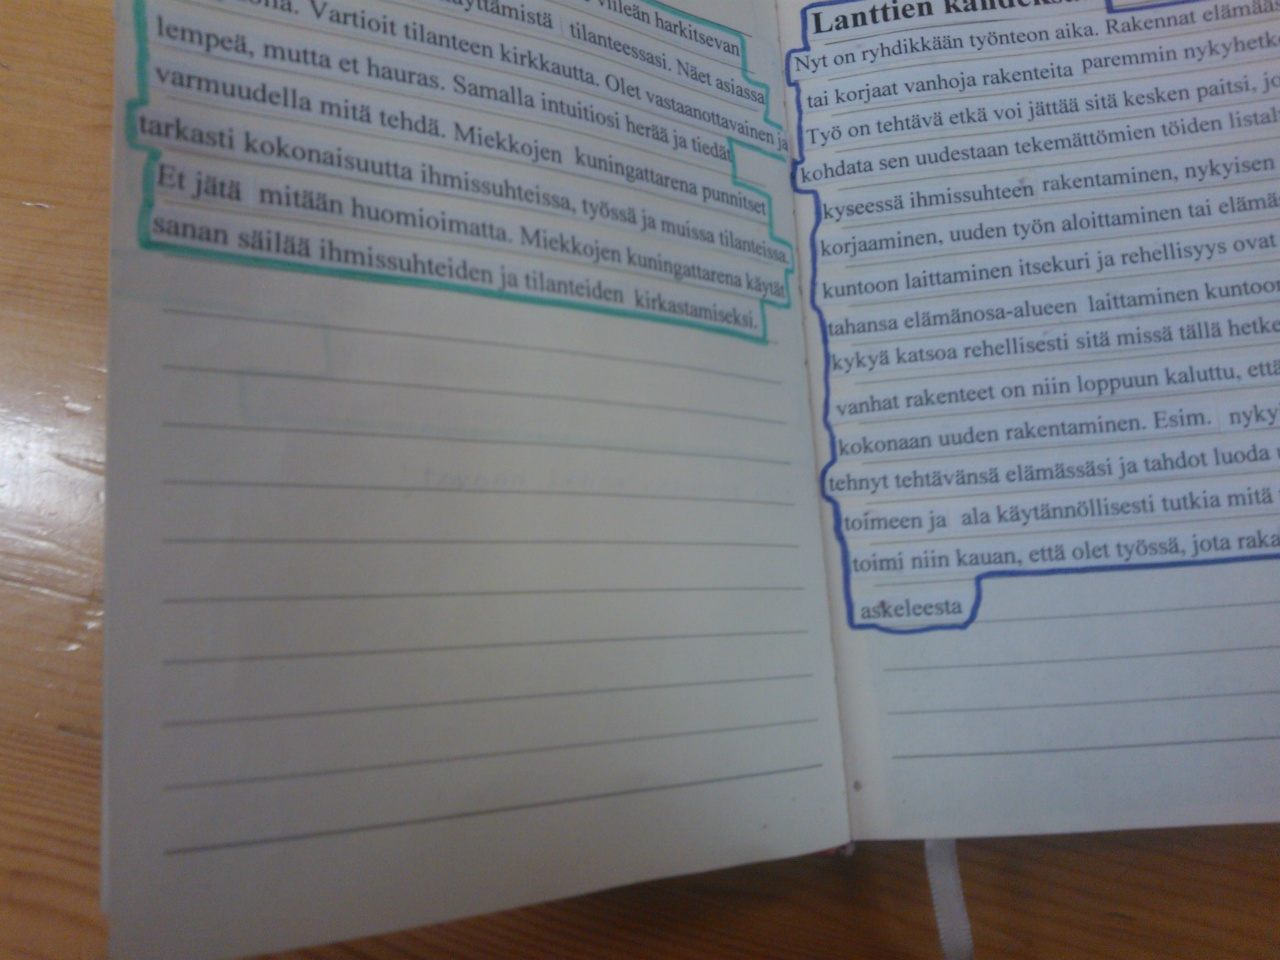 viileän harkitsevan
käyttämistä tilanteessasi. Näet asiassa
Vartioit tilanteen kirkkautta. Olet vastaanottavainen ja
lempeä, mutta et hauras. Samalla intuitiosi herää ja tiedät
varmuudella mitä tehdä. Miekkojen kuningattarena punnitset
tarkasti kokonaisuutta ihmissuhteissa, työssä ja muissa tilanteissa.
Et jätä mitään huomioimatta. Miekkojen kuningattarena käytät
sanan säilää ihmissuhteiden ja tilanteiden kirkastamiseksi.
Lanttien
Nyt on ryhdikkään työnteon aika. Rakennat elämääs
tai korjaat vanhoja rakenteita paremmin nykyhetke
Työ on tehtävä etkä voi jättää sitä kesken paitsi, jo
kohdata sen uudestaan tekemättömien töiden listal
kyseessä ihmissuhteen rakentaminen, nykyisen
korjaaminen, uuden työn aloittaminen tai elämä
kuntoon laittaminen itsekuri ja rehellisyys ovat
tahansa elämänosa-alueen laittaminen kuntoon
kykyä katsoa rehellisesti sitä missä tällä hetke
vanhat rakenteet on niin loppuun kaluttu, että
kokonaan uuden rakentaminen. Esim. nyky
tehnyt tehtävänsä elämässäsi ja tahdot luoda
toimeen ja ala käytännöllisesti tutkia mitä
toimi niin kauan, että olet työssä, jota raka
askeleesta